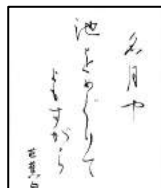 名月や
池をめぐりて
よもすがら
芭蕉